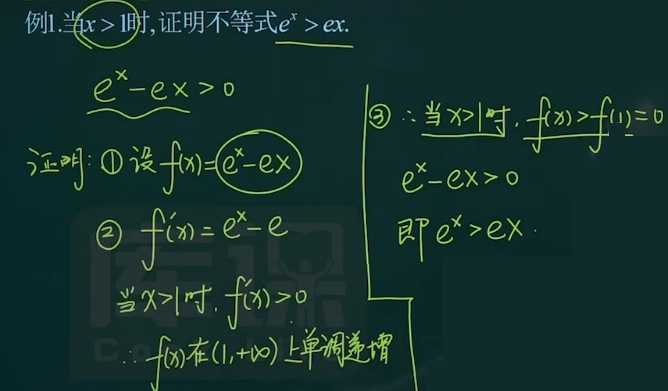 例1.当x>1时,证明不等式eˣ>ex.
eˣ-ex>0
证明:①设f(x)=eˣ-ex
② f'(x)=eˣ-e
当x>1时,f'(x)>0
∴f(x)在(1,+∞)上单调递增
③∴当x>1时,f(x)>f(1)=0
eˣ-ex>0
即eˣ>ex.
库课